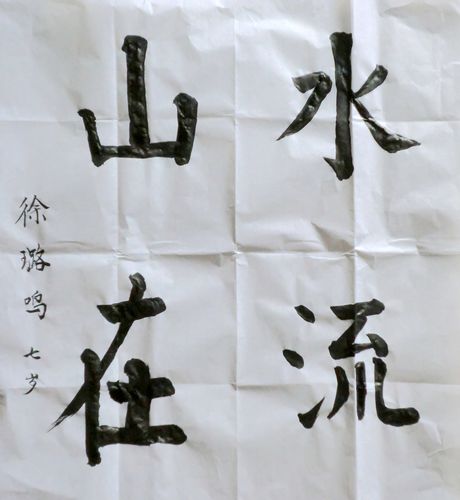 水流
山在
徐璐鸣 七岁